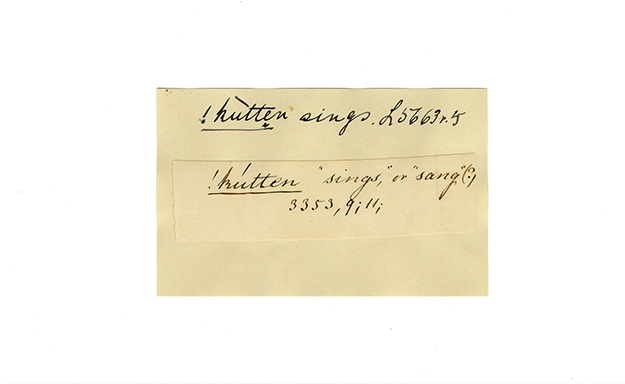 !kùttẹn sings. L5663r.5
!kútten "sings," or "sang"(?)
3353, 9; 11;